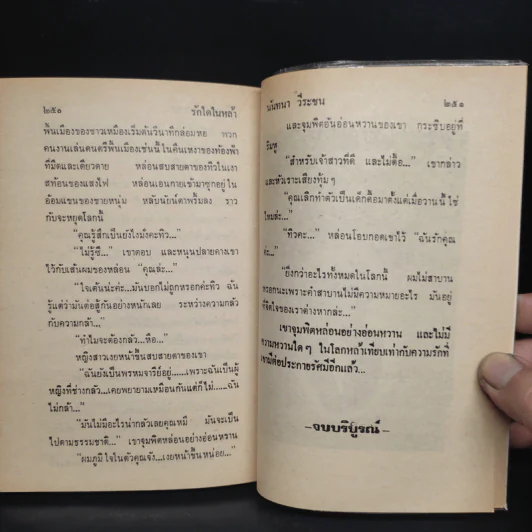 ๒๕๑ รักใดในหล้า
พื้นเมืองของชาวเหมืองเริ่มต้นวินาทีกล่อมหอ พวก
คนงานเล่นดนตรีพื้นเมืองเช่นนี้ ในคืนเหงาของท้องฟ้า
ที่มืดและเดียวดาย หล่อนสบสายตาของทิวในเงา
สะท้อนของแสงไฟ หล่อนเอนกายเข้ามาซุกอยู่ใน
อ้อมแขนของชายหนุ่ม หลับนัยน์ตาพริ้มลง ราว
กับจะหยุดโลกนี้
"คุณรู้สึกเป็นยังไงมั่งคะทิว..."
"ไม่รู้ซี..." เขาตอบ และหนุนปลายคางเขา
ไว้กับเส้นผมของหล่อน "คุณล่ะ..."
"ใจเต้นน่ะค่ะ...มันบอกไม่ถูกหรอกค่ะทิว ฉัน
รู้แต่ว่ามันต่อสู้กันอย่างหนักเลย ระหว่างความกลัว
กับความกล้า..."
"ทำไมจะต้องกลัว...หือ..."
หญิงสาวเงยหน้าขึ้นสบสายตาของเขา
"ฉันยังเป็นพรหมจารีย์อยู่......เพราะฉันเป็นผู้
หญิงที่ช่างกลัว...เคยพยายามเหมือนกันแต่ก็ไม่.....ฉัน
ไม่กล้า..."
"มันไม่มีอะไรน่ากลัวเลยคุณหมี มันจะเป็น
ไปตามธรรมชาติ..." เขาจุมพิตหล่อนอย่างอ่อนหวาน
"ผมภูมิใจในตัวคุณจัง...เงยหน้าขึ้นหน่อย..."
นันทนา วีระชน ๒๕๑
และจุมพิตอันอ่อนหวานของเขา กระซิบอยู่ที่
ริมหู
"สำหรับเจ้าสาวที่ดี และไม่ดื้อ..." เขากล่าว
และหัวเราะเสียงทุ้ม ๆ
"คุณเลิกทำตัวเป็นเด็กดื้อมาตั้งแต่เมื่อวานนี้ใช่
ไหมล่ะ..."
"ทิวคะ..." หล่อนโอบกอดเขาไว้ "ฉันรักคุณ
ค่ะ..."
"ยิ่งกว่าอะไรทั้งหมดในโลกนี้ ผมไม่สาบาน
หรอกนะเพราะคำสาบานไม่มีความหมายอะไร มันอยู่
ที่จิตใจของเราต่างหากล่ะ..."
เขาจุมพิตหล่อนอย่างอ่อนหวาน และไม่มี
ความหวานใด ๆ ในโลกหล้าเทียบเท่ากับความรักที่
เขามีต่อประกายรัศมีอีกแล้ว...
-จบบริบูรณ์-